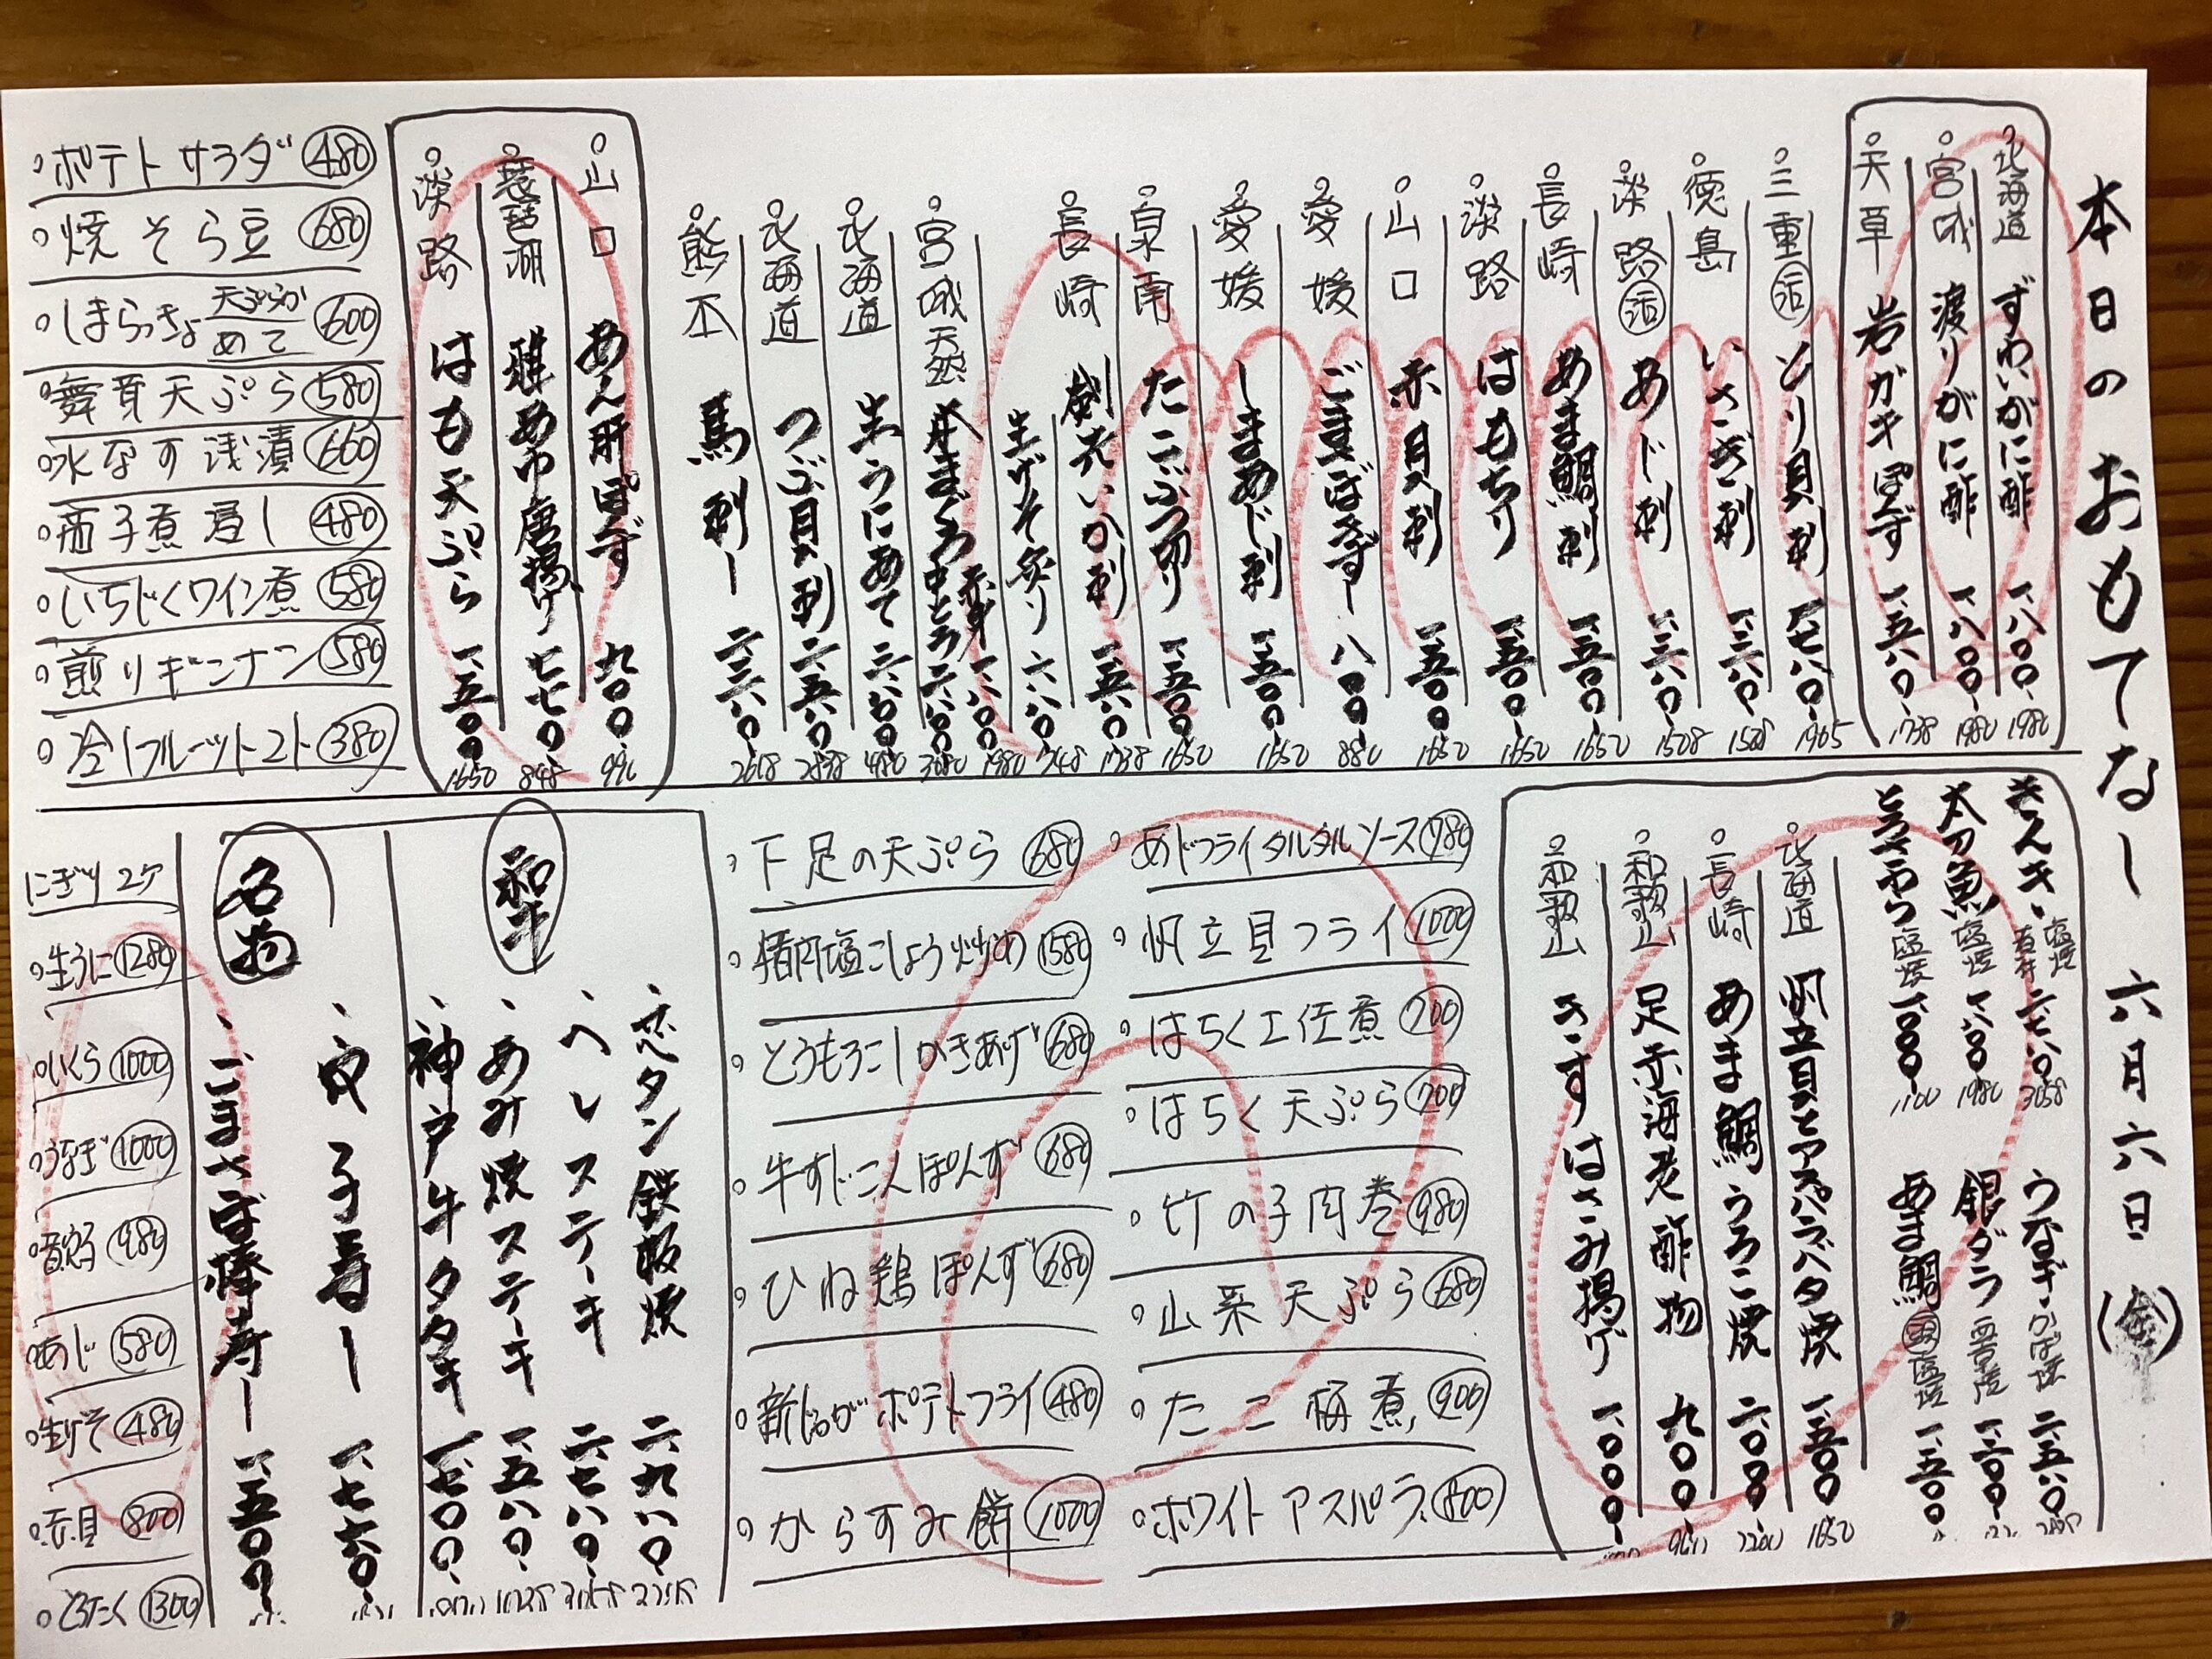 本日のおもてなし 六月六日(金)
北海道 ずわいがに酢 一、八〇〇 1980
宮城 渡りがに酢 一、八〇〇 1980
天草 岩ガキぽんず 一、五八〇 1738
三重 活 とり貝刺
徳島 いさぎ刺 一、三八〇
淡路 活 あじ刺 一、三八〇 1508
長崎 あま鯛刺 一、五〇〇 1650
淡路 はもちり 一、五〇〇 1650
山口 赤貝刺 一、五〇〇 1650
愛媛 ごまさばきずし 八〇〇 880
愛媛 しまあじ刺 一、五〇〇 1650
泉南 たこぶつ切り 一、五〇〇 1650
長崎 剣先いか刺 一、五八〇 1738
生げそ炙り 六八〇 748
宮城 天然 本まぐろ 赤身 一、八〇〇 1980
中とろ 二、八〇〇 3080
北海道 生うにあて
北海道 つぶ貝刺 二、五八〇
熊本 馬刺し 二、三八〇
山口 あん肝ぽんず 九〇〇 990
琵琶湖 稚あゆ唐揚げ 七七〇 848
淡路 はも天ぷら 一、五〇〇 1650
ポテトサラダ 480
焼そら豆 680
しまらっきょ 天ぷらか あて 600
舞茸天ぷら 580
水なす浅漬 660
茄子煮浸し 480
いちじくワイン煮 580
煎りギンナン 580
冷しフルーツトマト 380
きんき 塩焼 煮付 二、七八〇 3058
太刀魚 塩焼 一、八〇〇 1980
とろさわら 塩焼 一、〇〇〇 1100
うなぎ かば焼 二、五八〇
銀ダラ 西京焼
あま鯛 頭 塩焼 一、五〇〇
北海道 帆立貝とアスパラバタ焼 一、五〇〇 1650
長崎 あま鯛うろこ焼 二、〇〇〇 2200
和歌山 足赤海老酢物 九〇〇
和歌山 きすはさみ揚げ 一、〇〇〇
あじフライタルタルソース 780
帆立貝フライ 1000
はちく土佐煮 700
はちく天ぷら 700
竹の子肉巻 980
山菜天ぷら 680
たこ梅煮 900
ホワイトアスパラ 800
下足の天ぷら 680
猪肉塩こしょう炒め 1580
とうもろこしかきあげ 680
牛すじこんぽんず 680
ひね鶏ぽんず 680
新じゃがポテトフライ 480
からすみ餅 1000
和牛
タン鉄板焼 二、九八〇
ヘレステーキ 二、七八〇
あみ焼ステーキ 一、五八〇
神戸牛タタキ 一、七〇〇
名物
穴子寿し 一、七六〇
ごまさば棒寿し 一、五〇〇
にぎり2ケ
生うに 1280
いくら 1000
うなぎ 1000
あじ 580
生げそ 480
赤貝 800
とろたく 1300